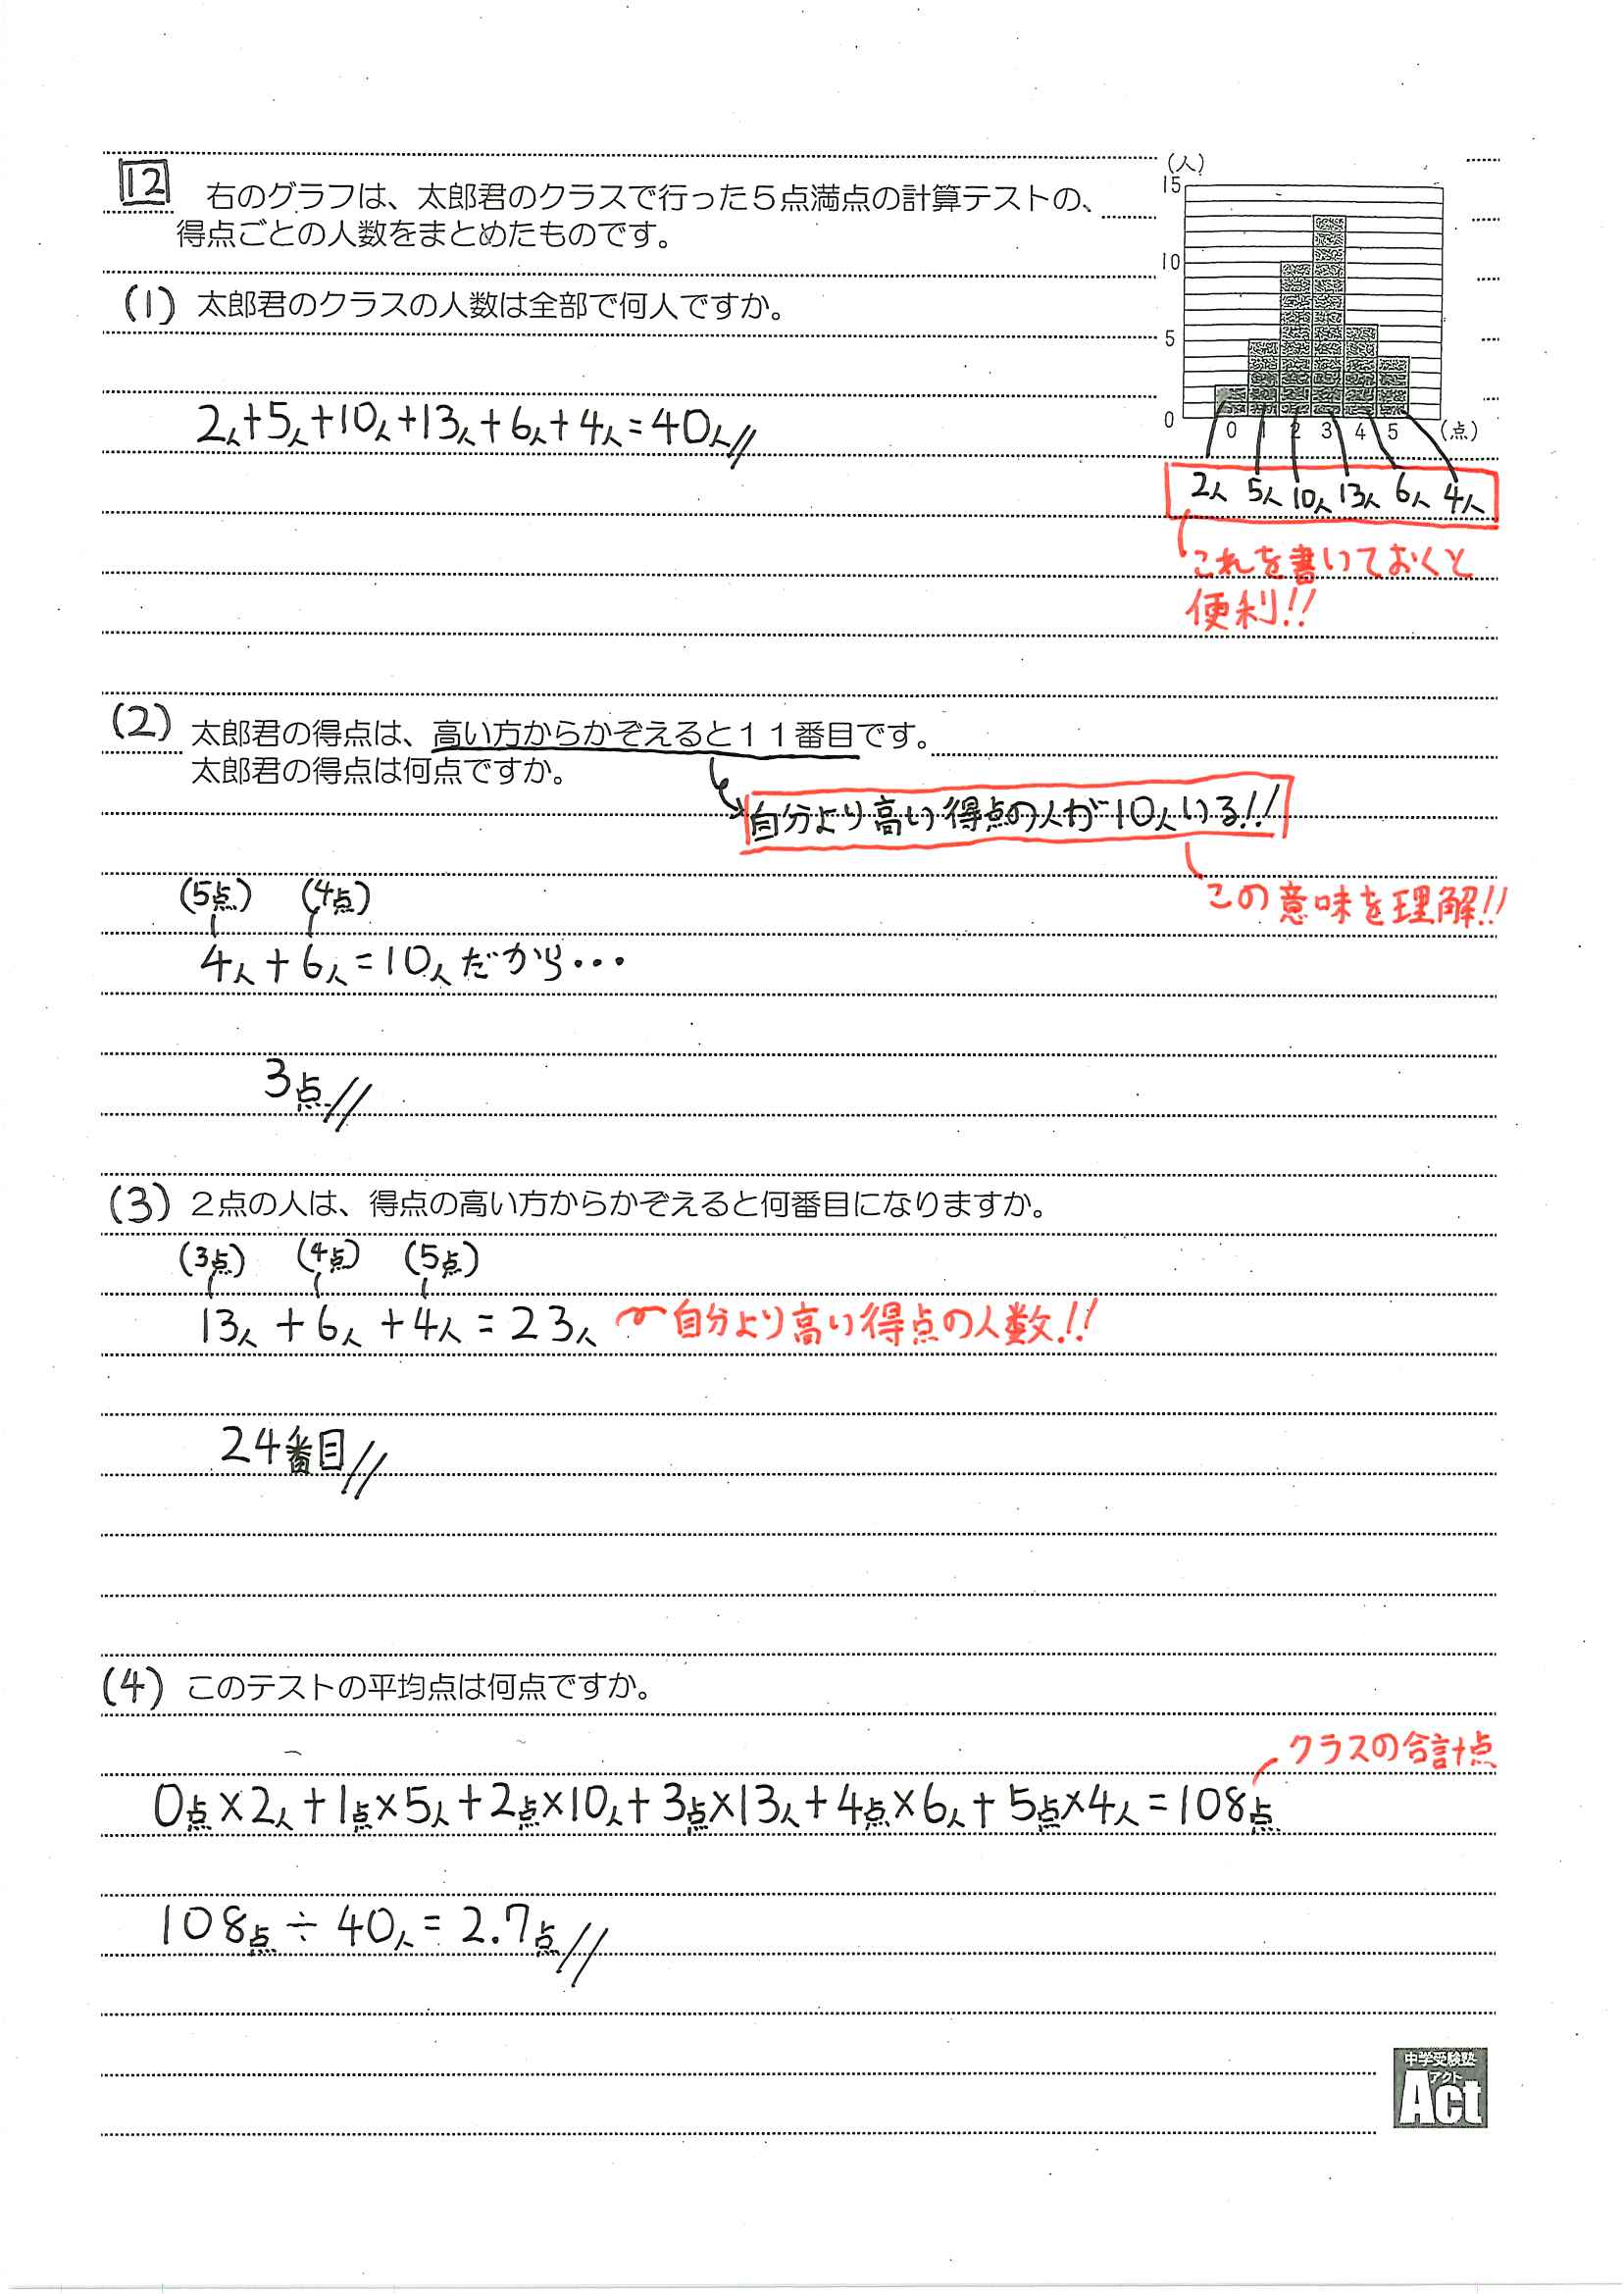 12 右のグラフは、太郎君のクラスで行った5点満点の計算テストの、
得点ごとの人数をまとめたものです。
(人)
15
10
5
0
0 1 2 3 4 5 (点)
2人 5人 10人 13人 6人 4人
これを書いておくと
便利!!
(1) 太郎君のクラスの人数は全部で何人ですか。
2人+5人+10人+13人+6人+4人=40人
(2) 太郎君の得点は、高い方からかぞえると11番目です。
太郎君の得点は何点ですか。
自分より高い得点の人が10人いる!!
この意味を理解!!
(5点) (4点)
4人+6人=10人だから…
3点
(3) 2点の人は、得点の高い方からかぞえると何番目になりますか。
(3点) (4点) (5点)
13人+6人+4人=23人 自分より高い得点の人数!!
24番目
(4) このテストの平均点は何点ですか。
クラスの合計点
0点×2人+1点×5人+2点×10人+3点×13人+4点×6人+5点×4人=108点
108点÷40人=2.7点
中学受験塾
アクト
Act